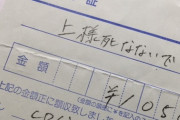 証
上様死なないで
金額 ¥105
上記の金額正に領収致しま